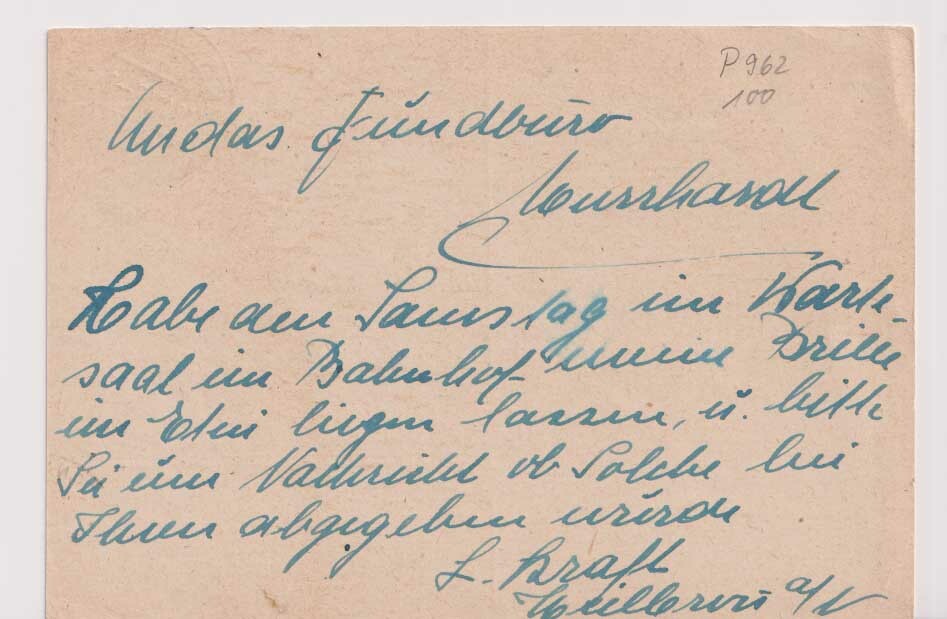 P 962
100
An das Fundbüro
Murrhardt
Habe am Samstag im Warte-
saal im Bahnhof meine Brille
im Etui liegen lassen, u. bitte
Sie um Nachricht ob Solche bei
Ihnen abgegeben wurde
L. Kraft
Heilbronn a/N